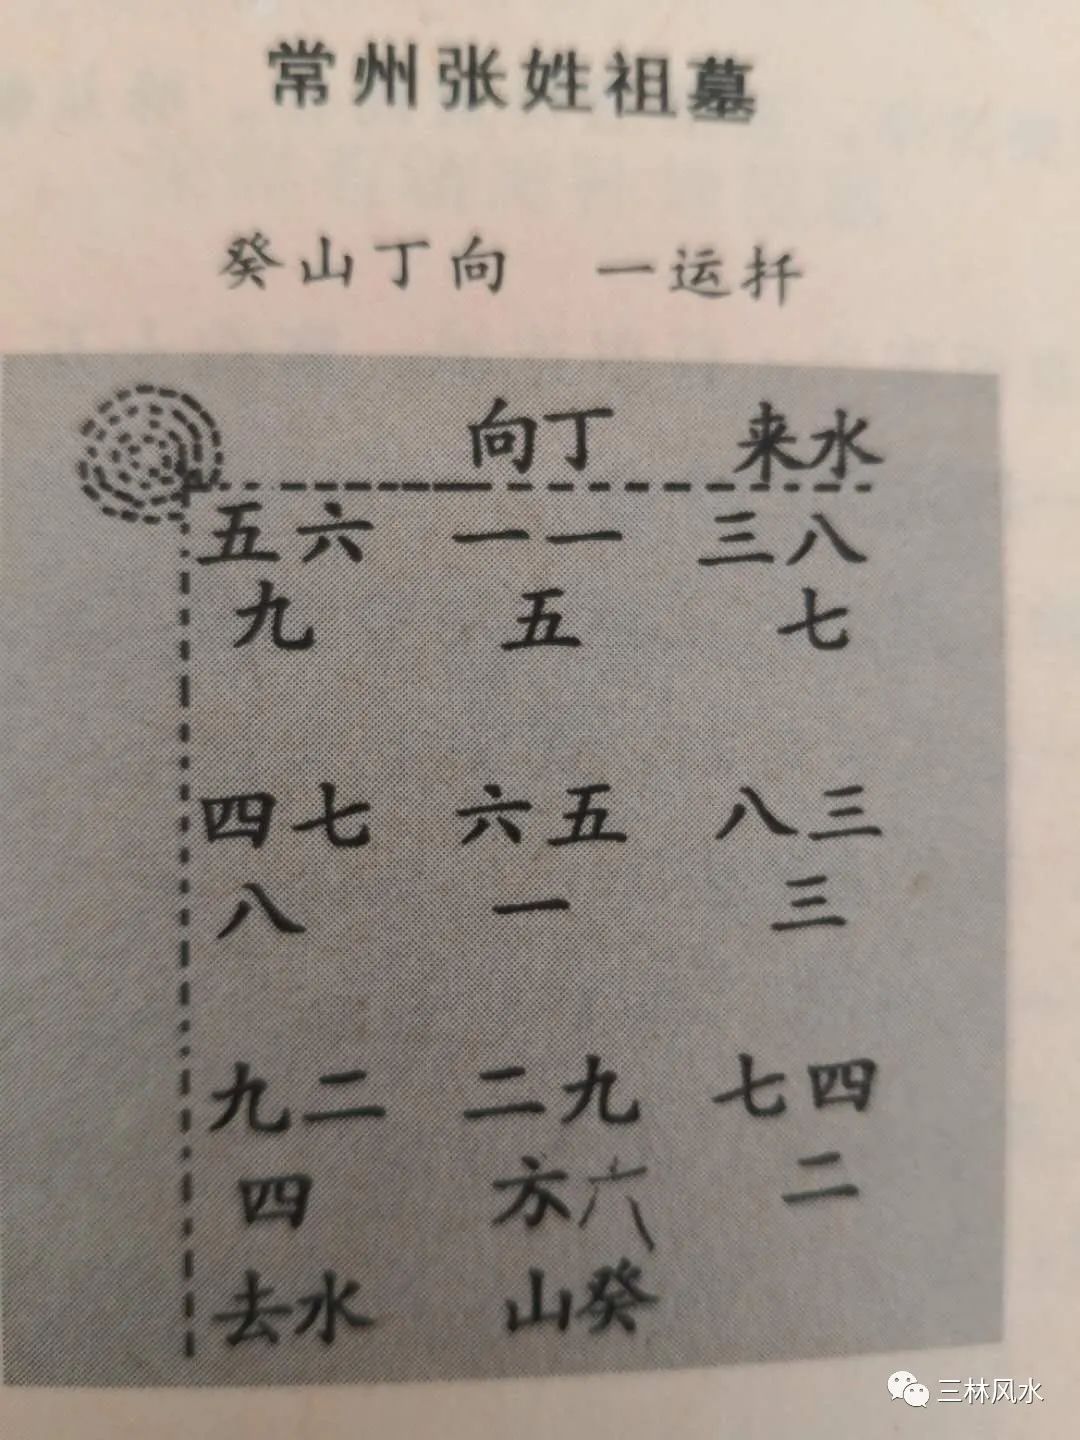 常州张姓祖墓
癸山丁向 一运扦
向丁 来水
五六 一一 三八
九 五 七
四七 六五 八三
八 一 三
九二 二九 七四
四 方六 二
去水 山癸
三林风水